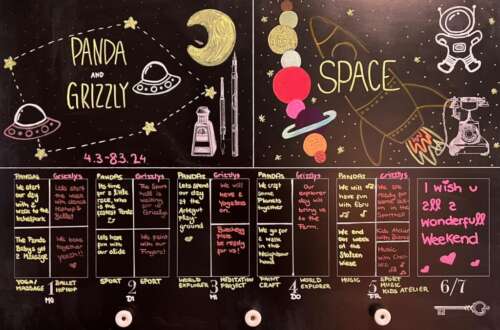 PANDA
AND
GRIZZLY
4.3-8.3.24
SPACE
PANDAS
We start
our day
with a
walk to the
Grizzlys
Lets start
the week
with dance
HipHop &
Ballet
The Panda
Babys get
a Massage
together
yeah!!
YOGA/
MASSAGE
1
MO
BALLET
HIPHOP
PANDAS
Its time
for a little
race, who
is the
fastest
Grizzlys
The Sport
hall is
waiting for
my
Grizzly
Lets have
fun with
our slide
We paint
with our
Fingers!
SPORT
2
DI
SPORT
PANDAS
Lets spend our
day at the
play-
ground
Grizzlys
We will
have a
be ready
for us!
WORLD
EXPLORER
3
MI
MEDITATION
PROJECT
PANDAS
We craft
some
Planets
together
Grizzlys
Our
explorer
day will
bring us
to the
Farm.
We go for
a walk in
the
neighbour
hood
PAINT
CRAFT
4
DO
WORLD
EXPLORER
PANDAS
We will
have fun
with Ebru
Grizzlys
We are
ready for
some
action in
the
Sporthall
We end our
week at the
wiese
Kids Atelier
with Diana
Music
with
MUSIC
5
FR
SPORT
MUSIC
KIDS ATELIER
I wish u
all a
wonderfull
Weekend
6/7